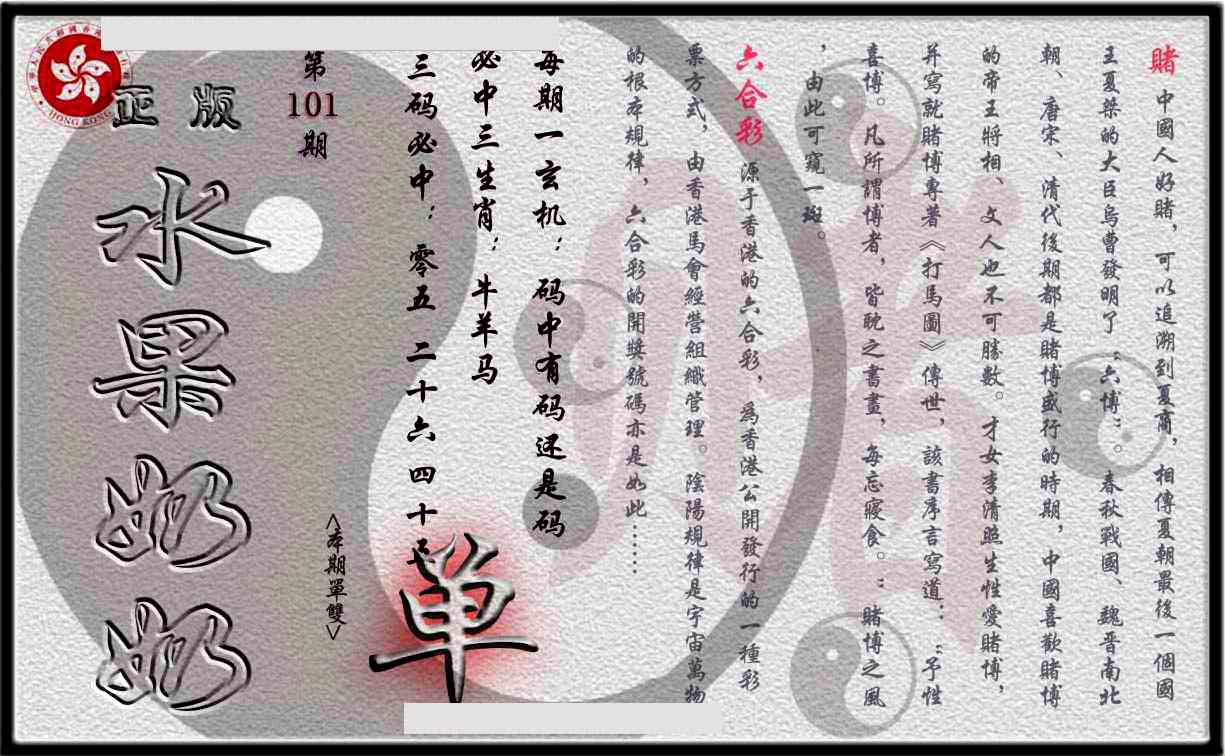 賭 中國人好賭，可以追溯到夏商，相傳夏朝最後一個國
王夏桀的大臣烏曹發明了“六博”。春秋戰國、魏晋南北
朝、唐宋、清代後期都是賭博盛行的時期，中國喜歡賭博
的帝王將相、文人也不可勝數。才女李清照生性愛賭博，
并寫就賭博專著《打馬圖》傳世，該書序言寫道：“予性
喜博。凡所謂博者，皆耽之書畫，每忘寢食。”賭博之風
，由此可窺一斑。
六合彩 源于香港的六合彩，為香港公開發行的一種彩
票方式，由香港馬會經營組織管理。陰陽規律是宇宙萬物
的根本規律，六合彩的開獎號碼亦是如此……
每期一玄机：码中有码还是码
必中三生肖：牛羊马
三码必中：零五 二十六 四十
单
<本期單雙>
第101期
正版
水果奶奶
HONG KONG